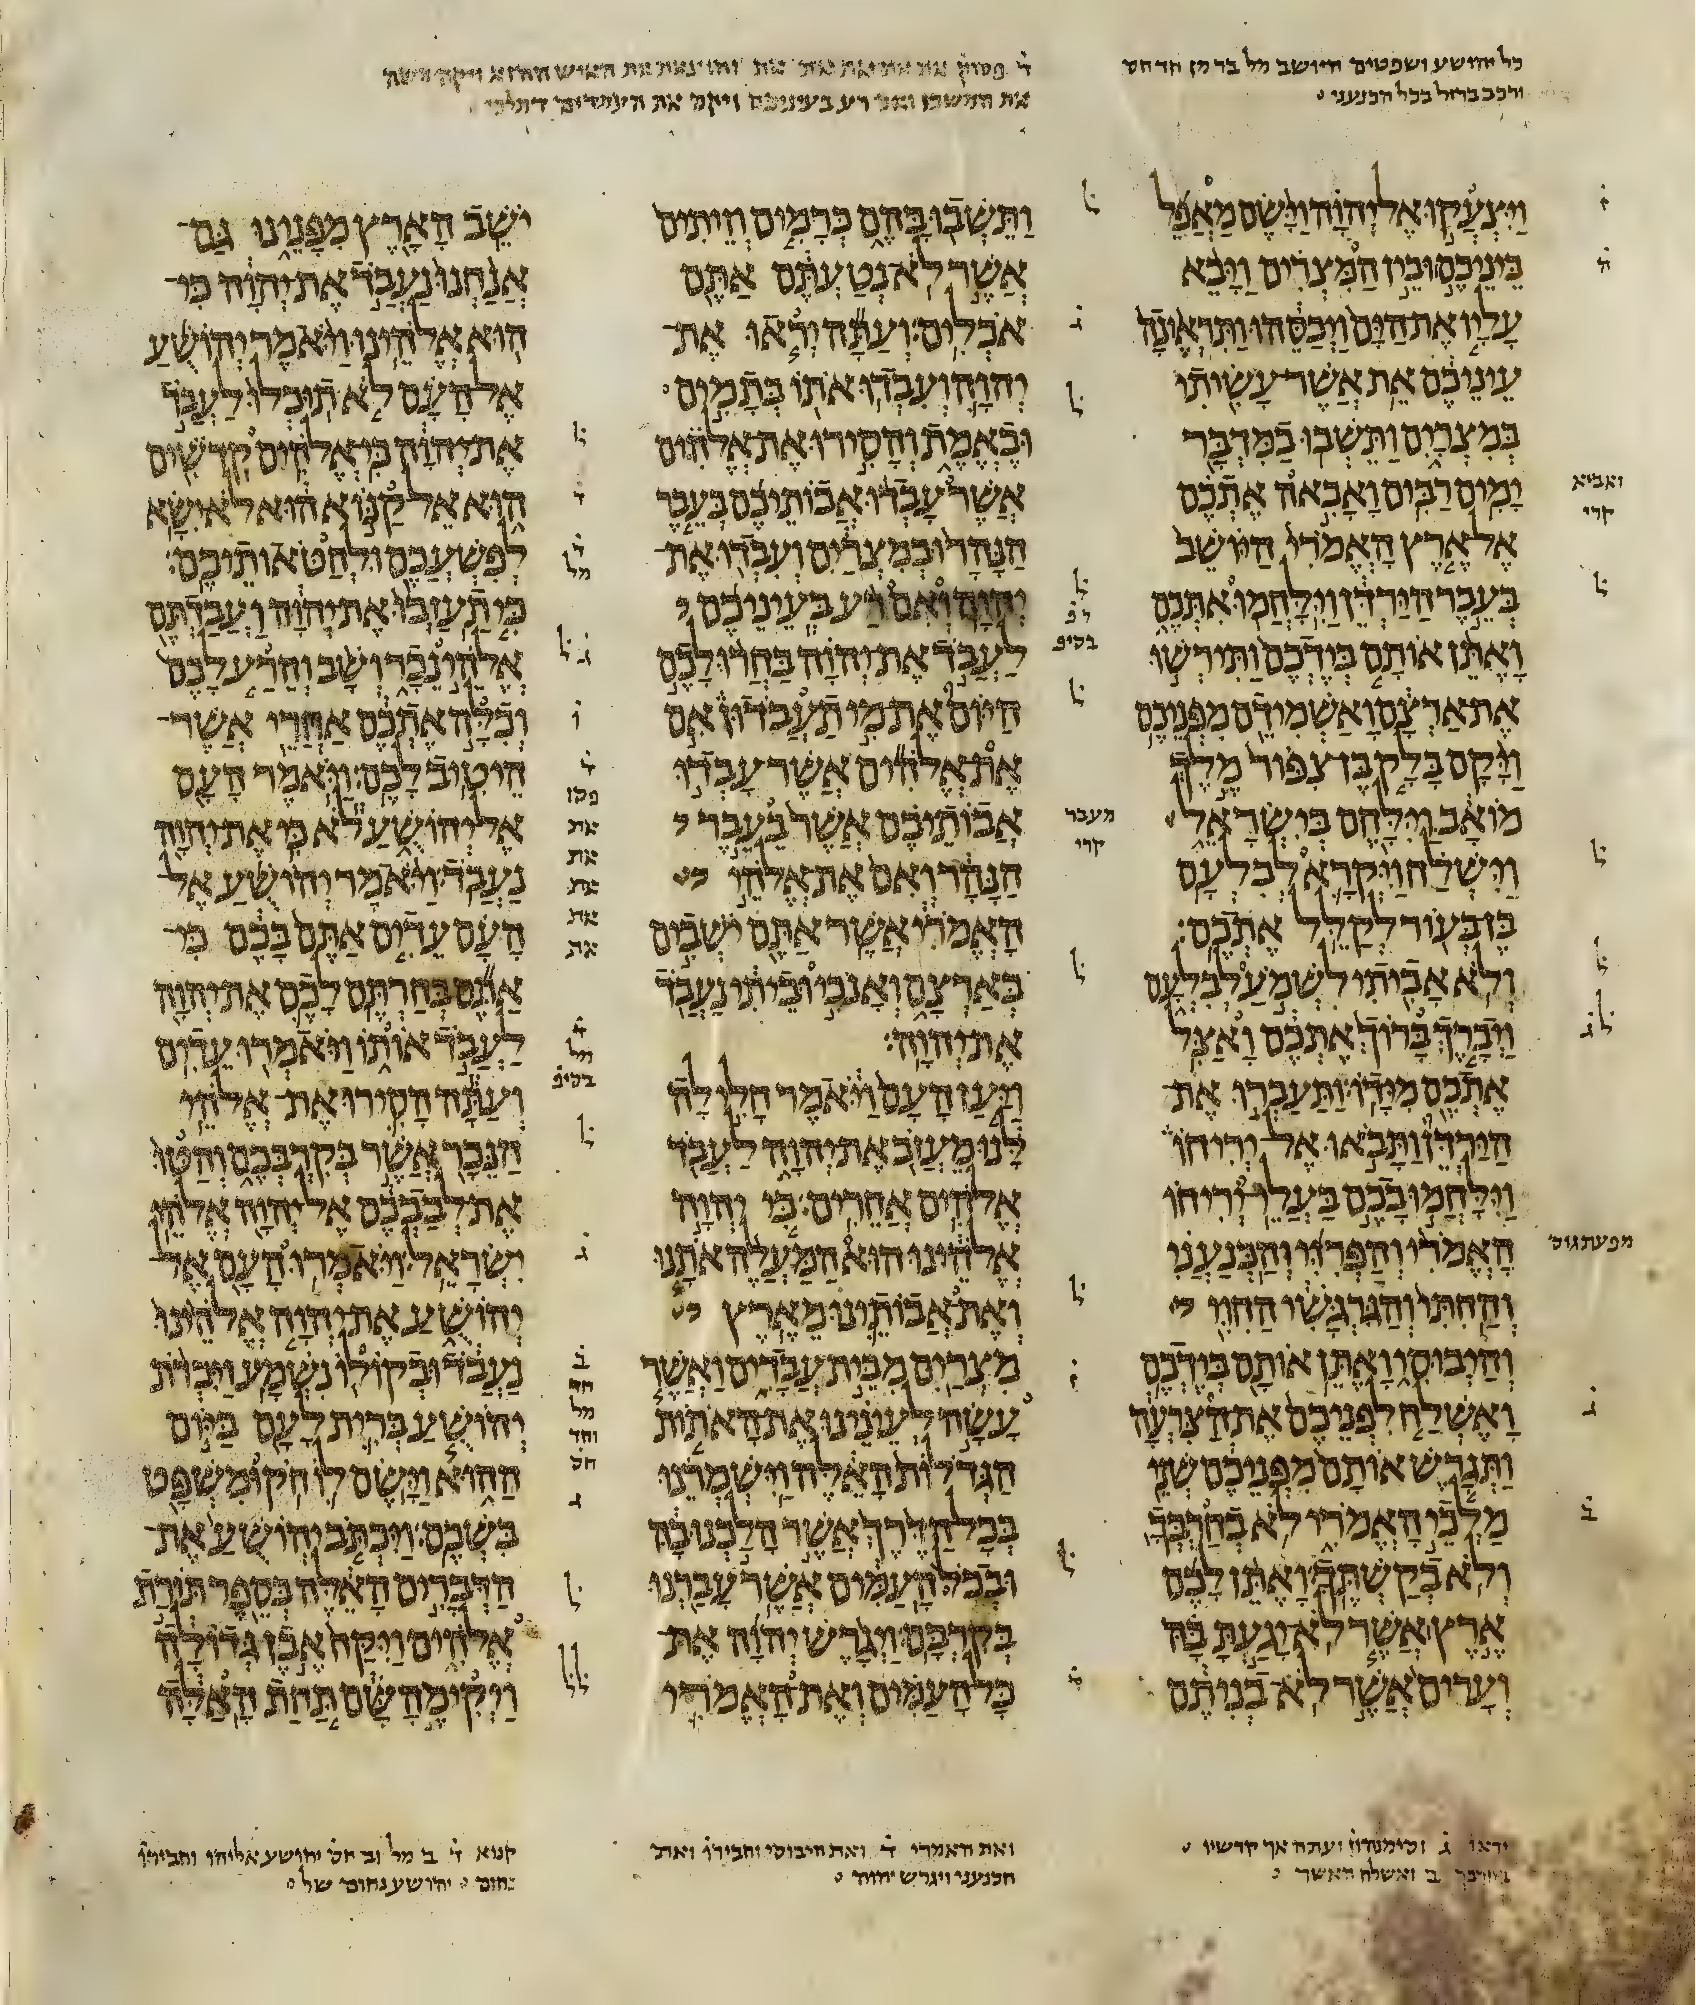 כל יהושע ושפטים היושב מל בר מן חד חס
ורכב ברזל בכל הכנעני
ויצעקו אל יהוה וישם מאפל
ביניכם ובין המצרים ויבא
עליו את הים ויכסהו ותראינה
עיניכם את אשר עשיתי
במצרים ותשבו במדבר
ימים רבים ואבאה אתכם
אל ארץ האמרי היושב
בעבר הירדן וילחמו אתכם
ואתן אותם בידכם ותירשו
את ארצם ואשמידם מפניכם
ויקם בלק בן צפור מלך
מואב וילחם בישראל
וישלח ויקרא לבלעם
בן בעור לקלל אתכם׃
ולא אביתי לשמע לבלעם
ויברך ברוך אתכם ואצל
אתכם מידו׃ ותעברו את־
הירדן ותבאו אל יריחו
וילחמו בכם בעלי יריחו
האמרי והפרזי והכנעני
והחתי והגרגשי החוי
והיבוסי ואתן אותם בידכם
ואשלח לפניכם את הצרעה
ותגרש אותם מפניכם שני
מלכי האמרי לא בחרבך
ולא בקשתך׃ ואתן לכם
ארץ אשר לא יגעת בה
וערים אשר לא בניתם
ואביא
קרי
ד פסוק את את את את את
את המשכן ואם רע בעיניכם ויקם את העמודים
ותשבו בהם כרמים וזיתים
אשר לא נטעתם אתם
אכלים׃ ועתה יראו את־
יהוה ועבדו אתו בתמים
ובאמת והסירו את אלהים
אשר עבדו אבותיכם בעבר
הנהר ובמצרים ועבדו את־
יהוה׃ ואם רע בעיניכם
לעבד את יהוה בחרו לכם
היום את מי תעבדון אם
את אלהים אשר עבדו
אבותיכם אשר בעבר
הנהר ואם את אלהי
האמרי אשר אתם ישבים
בארצם ואנכי וביתי נעבד
את יהוה׃
ויען העם ויאמר חלילה
לנו מעזב את יהוה לעבד
אלהים אחרים׃ כי יהוה
אלהינו הוא המעלה אתנו
ואת אבותינו מארץ
מצרים מבית עבדים ואשר
עשה לעינינו את האתות
הגדלות האלה וישמרנו
בכל הדרך אשר הלכנו בה
ובכל העמים אשר עברנו
בקרבם׃ ויגרש יהוה את־
כל העמים ואת האמרי
מעבר
קרי
ישב הארץ מפנינו גם־
אנחנו נעבד את יהוה כי־
הוא אלהינו׃ ויאמר יהושע
אל העם לא תוכלו לעבד
את יהוה כי אלהים קדשים
הוא אל קנוא הוא לא ישא
לפשעכם ולחטאותיכם׃
כי תעזבו את יהוה ועבדתם
אלהי נכר ושב והרע לכם
וכלה אתכם אחרי אשר־
היטיב לכם׃ ויאמר העם
אל יהושע לא כי את יהוה
נעבד׃ ויאמר יהושע אל
העם עדים אתם בכם כי־
אתם בחרתם לכם את יהוה
לעבד אותו ויאמרו עדים
ועתה הסירו את אלהי
הנכר אשר בקרבכם והטו
את לבבכם אל יהוה אלהי
ישראל׃ ויאמרו העם אל
יהושע את יהוה אלהינו
נעבד ובקולו נשמע׃ ויכרת
יהושע ברית לעם ביום
ההוא וישם לו חק ומשפט
בשכם׃ ויכתב יהושע את־
הדברים האלה בספר תורת
אלהים ויקח אבן גדולה
ויקימה שם תחת האלה
פסו
את
את
את
את
את
ואשלח האשר
ואת האמרי ד ואת היבוסי וחבירו ואת
הכנעני ויגרש יהוה
קנוא ד ב מל וב חס יהושע אליהו וחבירו
נחום יהושע נחום של